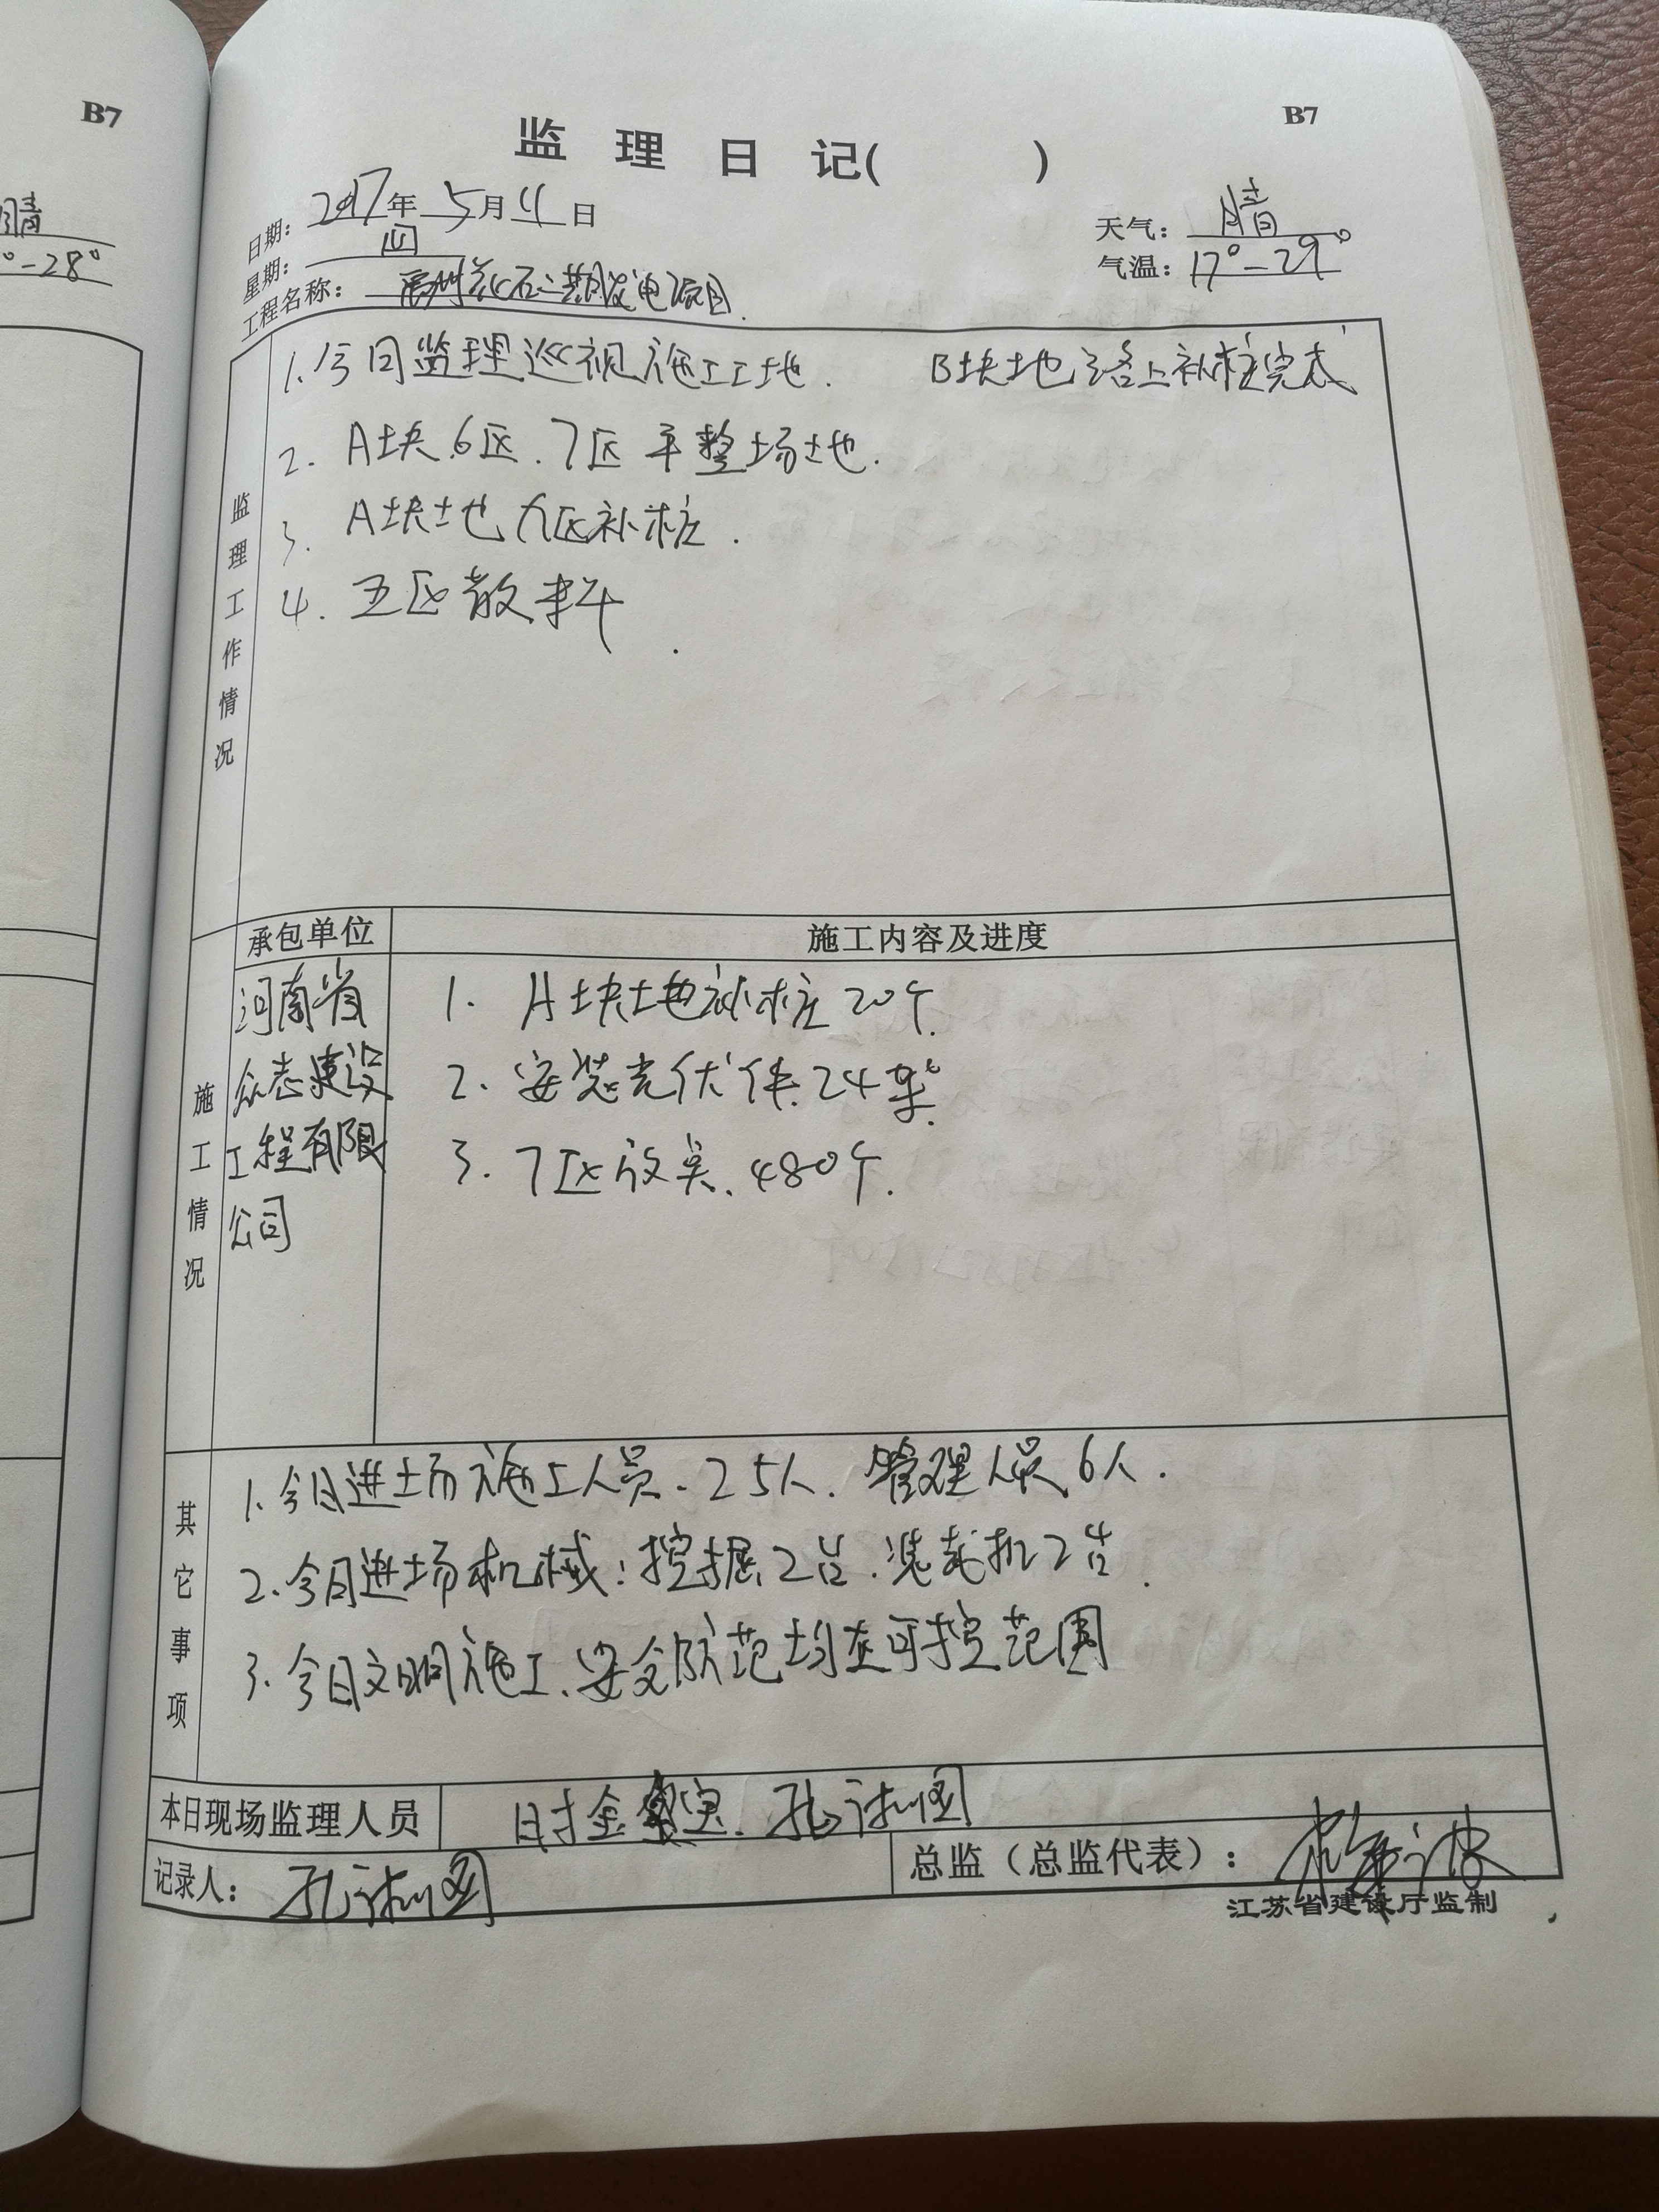 B7
晴
°-28°
B7
监 理 日 记( )
日期: 2017年 5月 11日
天气: 晴
星期: 四
气温: 17°-29°
工程名称: 禹州 发电项目.
监理工作情况
1.今日监理巡视施工工地. B块地 路上补桩完成
2. A块.6区.7区平整场地.
3. A块土地 九区补桩.
4. 五区散料.
承包单位 施工内容及进度
施工情况
河南省
众志建设
工程有限
公司
1. A块土地补桩20个.
2. 安装光伏 24
3. 7区放 、480个.
其它事项
1.今日进场施工人员、25人. 管理人员6人.
2.今日进场机械:挖掘2台.装载机2台.
3.今日文明施工、安全防范均在可控范围
本日现场监理人员 时金 宝. 孔
记录人: 孔
总监(总监代表):
江苏省建设厅监制